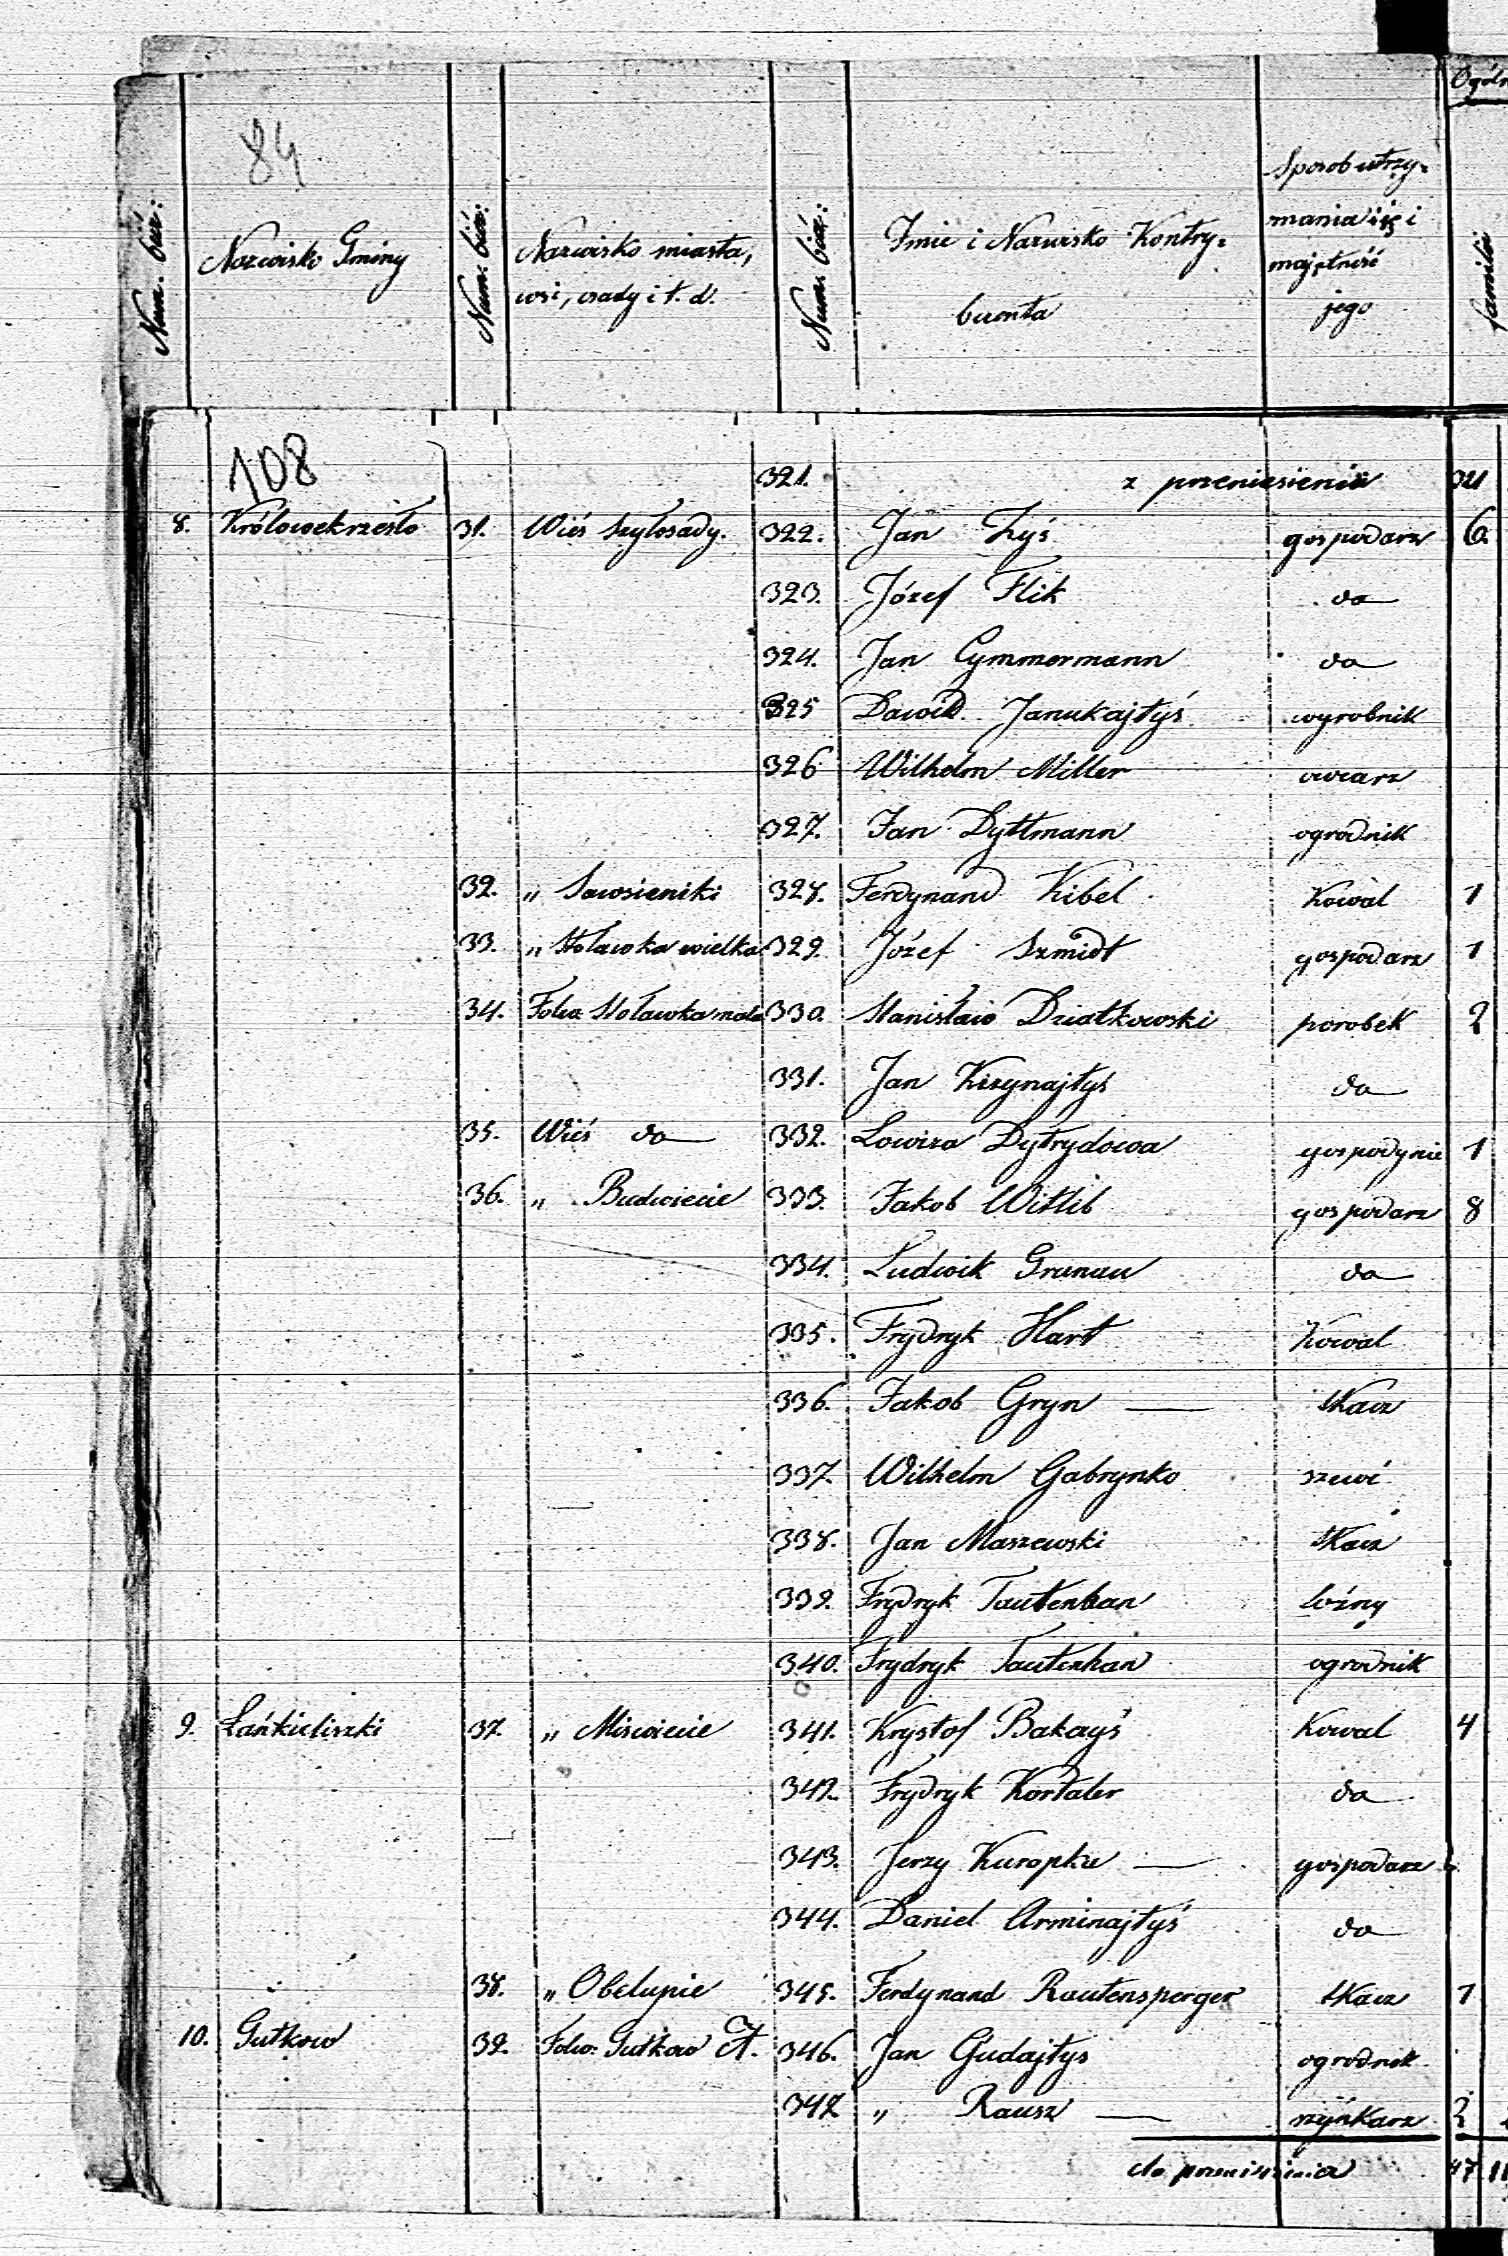 84
Num. bież:
Nazwisko Gminy
Num. bież:
Nazwisko miasta,
wsi, osady i t. d.
Num. bież:
Imie i Nazwisko Kontry-
buenta
Sposób utrzy-
mania się i
majętność
jego
familii
108
321. z przeniesienia 321
8. Królowekrzesło 31. Wieś Szyłosady. 322. Jan Zyś gospodarz 6
323. Józef Flik do
324. Jan Cymmermann do
325 Dawid Janukajtyś wyrobnik
326 Wilhelm Miller owczarz
327. Jan Dyttmann ogrodnik
32. „ Sawosieniki 328. Ferdynand Kibel Kowal 1
33. „ Stoławka wielka 329. Józef Szmidt gospodarz 1
34. Folw. Stoławka mała 330. Stanisław Dziatkowski parobek 2
331. Jan Kiszynajtyś do
35. Wieś do 332. Lowiza Dytrydowa gospodynie 1
36. „ Budwiecie 333. Jakob Witlib gospodarz 8
334. Ludwik Grunau do
335. Frydryk Hart Kowal
336. Jakob Gryn tkacz
337. Wilhelm Gabrynko szewc
338. Jan Maszewski tkacz
339. Frydryk Tautenhan woźny
340. Frydryk Tautenhan ogrodnik
9. Łańkieliszki 37. „ Misiwiecie 341. Krystof Bakayś Kowal 4
342. Frydryk Kortaler do
343. Jerzy Kuropka gospodarz
344. Daniel Arminajtyś do
38. „ Obelupie 345. Ferdynand Rautensperger tkacz 1
10. Gutkow 39. Folw. Gutkow A. 346. Jan Gudajtys ogrodnik
347 „ Rausz szynkarz 2
do przeniesienia 47